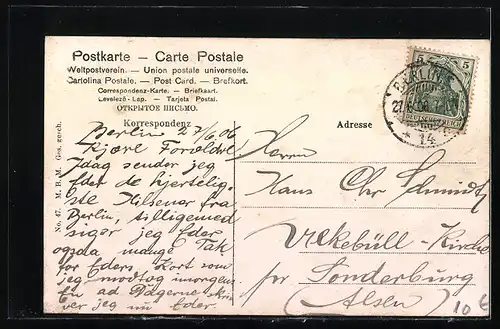 Postkarte – Carte Postale
Weltpostverein. – Union postale universelle.
Cartolina Postale. – Post Card. – Brefkort.
Correspondenz-Karte. – Briefkaart.
Levelező-Lap. – Tarjeta Postal.
ОТКРЫТОЕ ПИСЬМО.
Korrespondenz
Berlin 27/6 06
Kjære Forældre
Idag sender jeg
Eder de hjertelig-
ste Hilsener fra
Berlin, tilligemed
siger jeg Eder
ogsaa mange Tak
for Eders Kort som
jeg modtog imorges
ad Dagerne
jeg nu Eder.
No. 47. M. B. M. Ges. gesch.
Adresse
5
DEUTSCHES REICH
BERLIN
27.6.06
14
Herrn
Hans Chr Schmidt
Ulkebüll-Kirche
per Sonderburg
(Alsen)
10 €